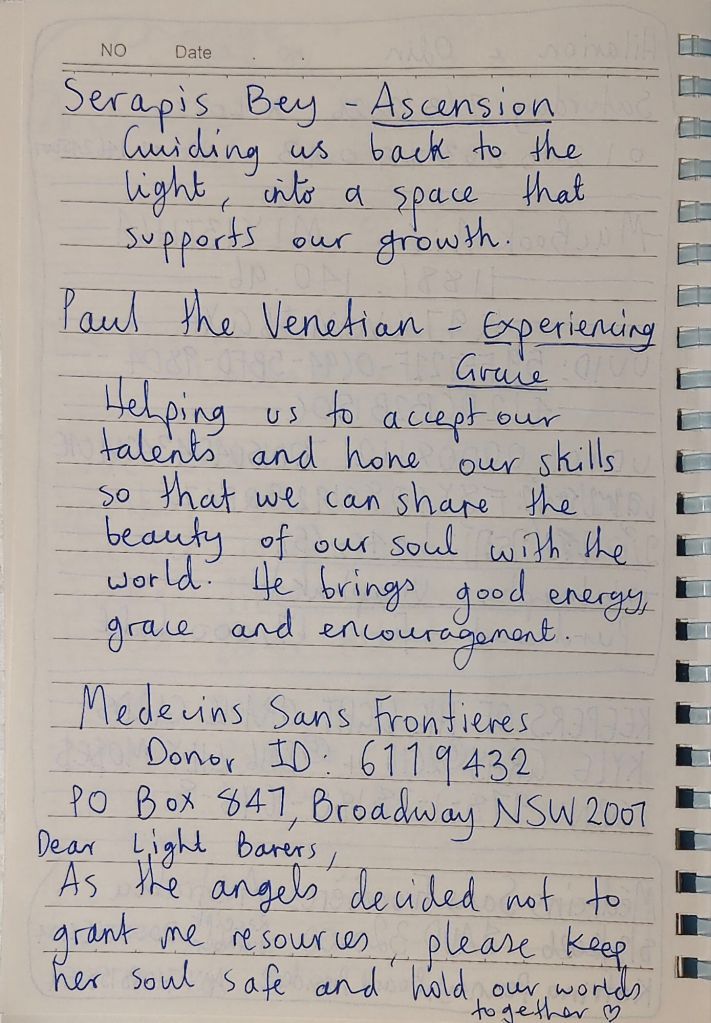 NO Date . .
Serapis Bey - Ascension
Guiding us back to the
light, into a space that
supports our growth.
Paul the Venetian - Experiencing
Grace
Helping us to accept our
talents and hone our skills
so that we can share the
beauty of our soul with the
world. He brings good energy,
grace and encouragement.
Medecins Sans Frontieres
Donor ID: 6119432
PO Box 847, Broadway NSW 2007
Dear Light Barers,
As the angels decided not to
grant me resources, please keep
her soul safe and hold our worlds
together ♡